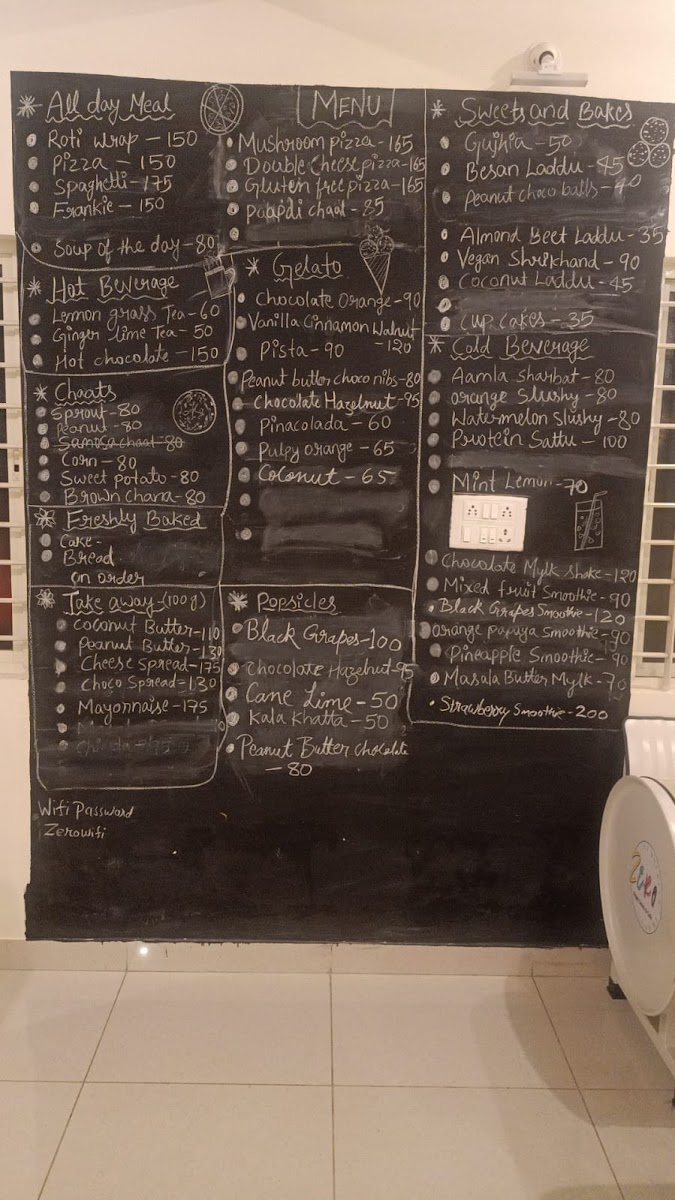 All day Meal
Roti wrap - 150
Pizza - 150
Spaghetti - 175
Frankie - 150
Soup of the day - 80
Hot Beverage
Lemon grass Tea - 60
Ginger lime Tea - 50
Hot chocolate - 150
Chaats
Sprout - 80
Peanut - 80
Samosa chaat - 80
Corn - 80
Sweet potato - 80
Brown chana - 80
Freshly Baked
Cake -
Bread
on order
Take away (100 g)
Coconut Butter - 110
Peanut Butter - 130
Cheese Spread - 175
Choco Spread - 130
Mayonnaise - 175
Wifi Password
Zerowifi
MENU
Mushroom pizza - 165
Double Cheese pizza - 165
Gluten free pizza - 165
papdi chaat - 85
Gelato
Chocolate Orange - 90
Vanilla Cinnamon Walnut
- 120
Pista - 90
Peanut butter choco nibs - 80
Chocolate Hazelnut - 95
Pinacolada - 60
Pulpy orange - 65
Coconut - 65
Popsicles
Black Grapes - 100
Chocolate Hazelnut - 95
Cane Lime - 50
Kala Khatta - 50
Peanut Butter chocolate
- 80
Sweets and Bakes
Gujhia - 50
Besan Laddu - 45
Peanut choco balls - 40
Almond Beet Laddu - 35
Vegan Shrikhand - 90
Coconut Laddu - 45
Cup Cakes - 35
Cold Beverage
Aamla Sharbat - 80
orange Slushy - 80
Watermelon Slushy - 80
Protein Sattu - 100
Mint Lemon - 70
Chocolate Mylk shake - 120
Mixed fruit Smoothie - 90
Black Grapes Smoothie - 120
orange papaya Smoothie - 90
Pineapple Smoothie - 90
Masala Butter Mylk - 70
Strawberry Smoothie - 200